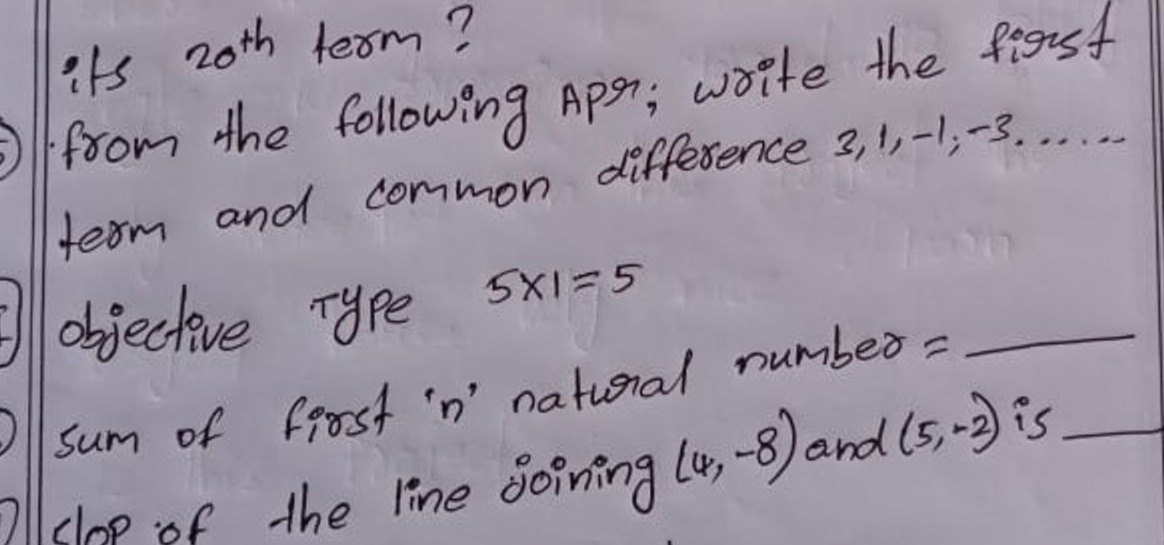 its 20th term ?
from the following APs; write the first
term and common difference 3, 1, -1, -3.......
objective Type 5x1=5
sum of first 'n' natural number = ______
slop of the line joining (4, -8) and (5, -2) is ______